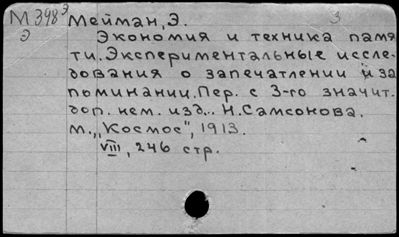 М 398 Э Мейман, Э. 3
Э Экономия и техника памя
ти. Экспериментальные иссле-
дования о запечатлении и за
поминании. Пер. с 3-го значит.
доп. нем. изд.. Н. Самсонова.
м., "Космос", 1913.
VIII, 246 стр.